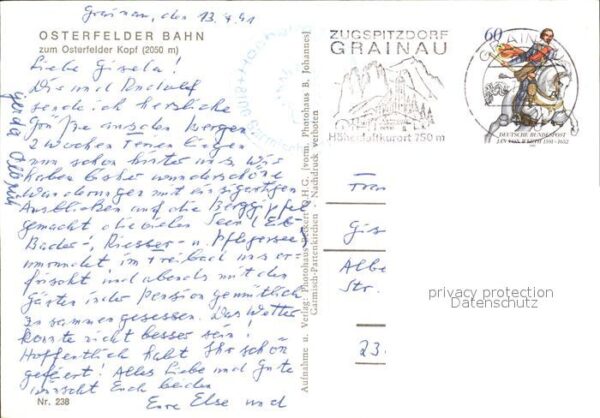 Grainau, den 13.9.91
OSTERFELDER BAHN
zum Osterfelder Kopf (2050 m)
Liebe Gisela!
Dir und
sende ich herzliche
Grüße aus den Bergen.
2 Wochen liegen
nun schon hinter uns. Wir
haben bisher wunderschöne
Wanderungen mit einzigartigen
Ausblicken auf die Berggipfel
gemacht die vielen Seen (Eib-
Bader-, Riesser- u. Pflegersee)
umrundet im Freibad uns er-
frischt und abends mit den
Gästen in der Pension gemütlich
zusammengesessen. Das Wetter
konnte nicht besser sein!
Hoffentlich habt Ihr schön
gefeiert! Alles Liebe und Gute
wünscht Euch beiden
Eure Else und
Gerda
Nr. 238
Aufnahme u. Verlag: Photohaus O.H.G. (vorm. Photohaus B. Johannes)
Garmisch-Partenkirchen - Nachdruck verboten
ZUGSPITZDORF
GRAINAU
Höhenluftkurort 750 m
GRAINAU
60
DEUTSCHE BUNDESPOST
JAN VON WERTH 1591-1652
Gis
Albe
Str.
23
privacy protection
Datenschutz